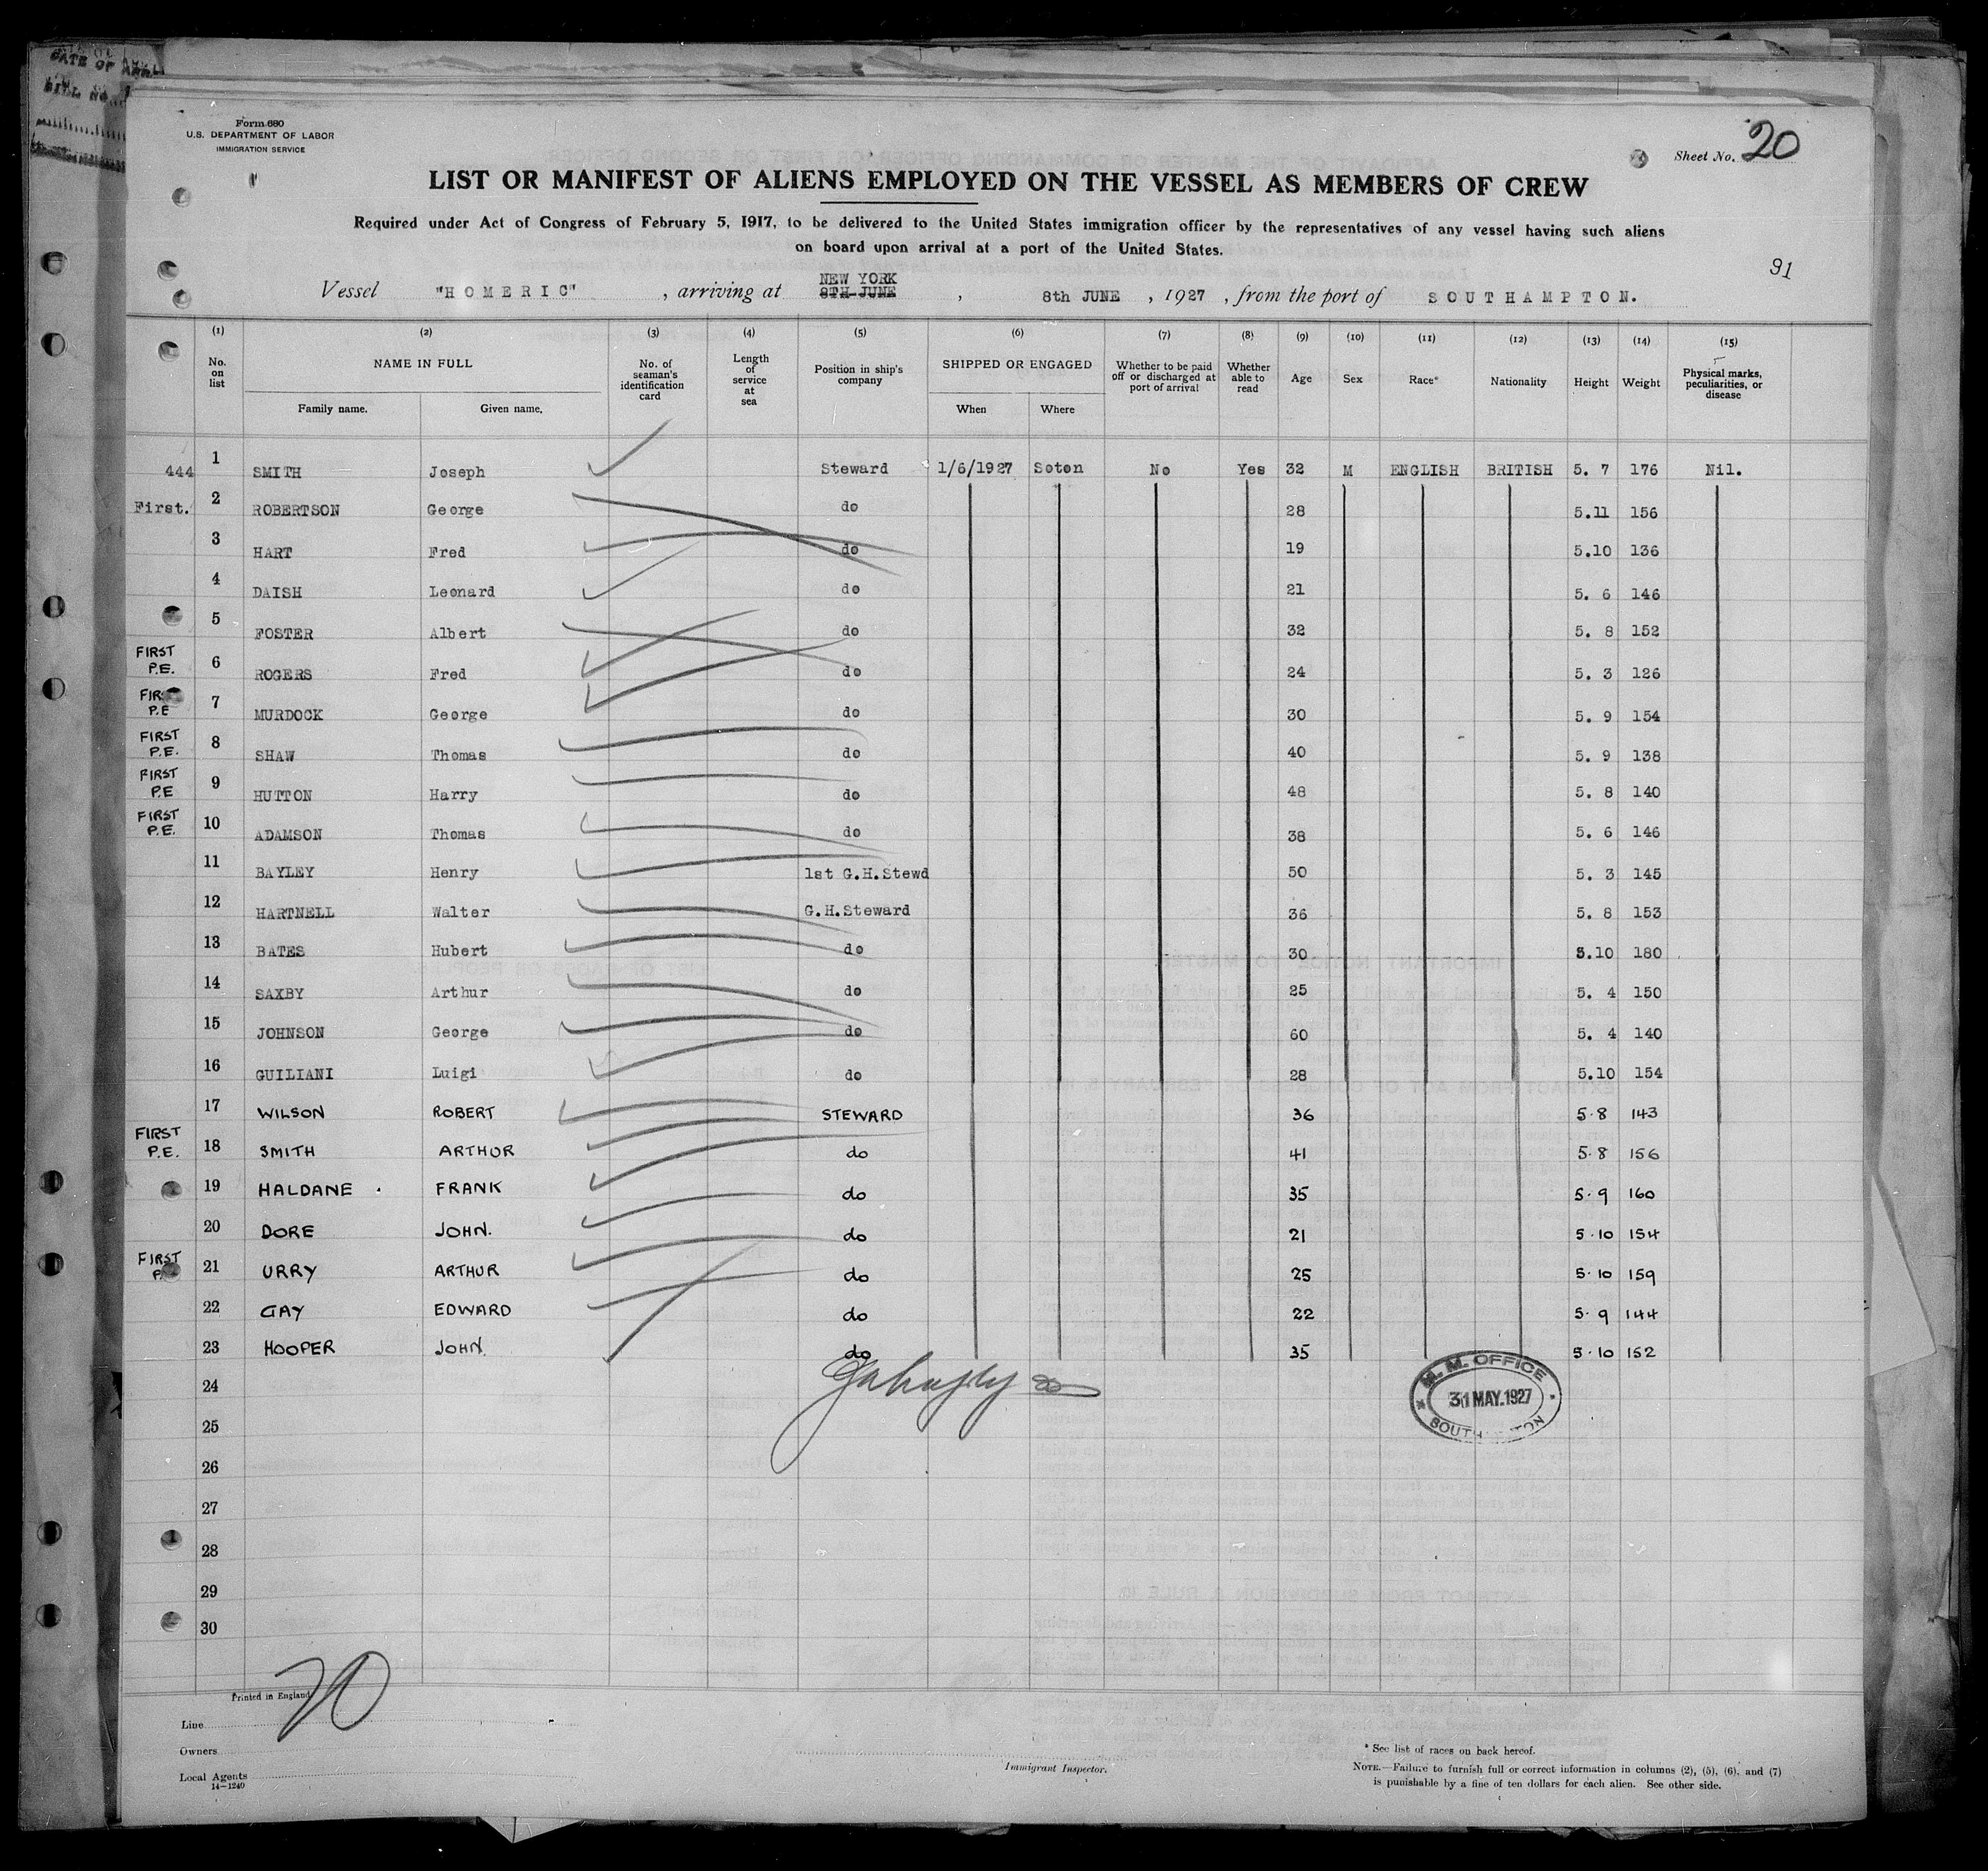 Form 680
U.S. DEPARTMENT OF LABOR
IMMIGRATION SERVICE
Sheet No. 20
LIST OR MANIFEST OF ALIENS EMPLOYED ON THE VESSEL AS MEMBERS OF CREW
Required under Act of Congress of February 5, 1917, to be delivered to the United States immigration officer by the representatives of any vessel having such aliens
on board upon arrival at a port of the United States.
91
NEW YORK
Vessel "HOMERIC" , arriving at 8TH JUNE , 8th JUNE , 1927 , from the port of SOUTHAMPTON.
(1) (2) (3) (4) (5) (6) (7) (8) (9) (10) (11) (12) (13) (14) (15)
No. on list NAME IN FULL Family name. Given name. No. of seaman's identification card Length of service at sea Position in ship's company SHIPPED OR ENGAGED When Where Whether to be paid off or discharged at port of arrival Whether able to read Age Sex Race* Nationality Height Weight Physical marks, peculiarities, or disease
444 1 SMITH Joseph Steward 1/6/1927 Soton No Yes 32 M ENGLISH BRITISH 5. 7 176 Nil.
First. 2 ROBERTSON George do 28 5.11 156
3 HART Fred do 19 5.10 136
4 DAISH Leonard do 21 5. 6 146
5 FOSTER Albert do 32 5. 8 152
FIRST P.E. 6 ROGERS Fred do 24 5. 3 126
FIRST P.E 7 MURDOCK George do 30 5. 9 154
FIRST P.E. 8 SHAW Thomas do 40 5. 9 138
FIRST P.E 9 HUTTON Harry do 48 5. 8 140
FIRST P.E. 10 ADAMSON Thomas do 38 5. 6 146
11 BAYLEY Henry 1st G.H.Stewd 50 5. 3 145
12 HARTNELL Walter G.H.Steward 36 5. 8 153
13 BATES Hubert do 30 5.10 180
14 SAXBY Arthur do 25 5. 4 150
15 JOHNSON George do 60 5. 4 140
16 GUILIANI Luigi do 28 5.10 154
17 WILSON ROBERT STEWARD 36 5·8 143
FIRST P.E. 18 SMITH ARTHUR do 41 5·8 156
19 HALDANE . FRANK do 35 5·9 160
20 DORE JOHN. do 21 5·10 154
FIRST 21 URRY ARTHUR do 25 5·10 159
22 GAY EDWARD do 22 5·9 144
23 HOOPER JOHN. do 35 5·10 152
24
25
26
27
28
29
30
M. M. OFFICE
31 MAY.1927
20
Printed in England
Line
Owners
Local Agents
14—1240
Immigrant Inspector.
* See list of races on back hereof.
NOTE.—Failure to furnish full or correct information in columns (2), (5), (6), and (7)
is punishable by a fine of ten dollars for each alien. See other side.